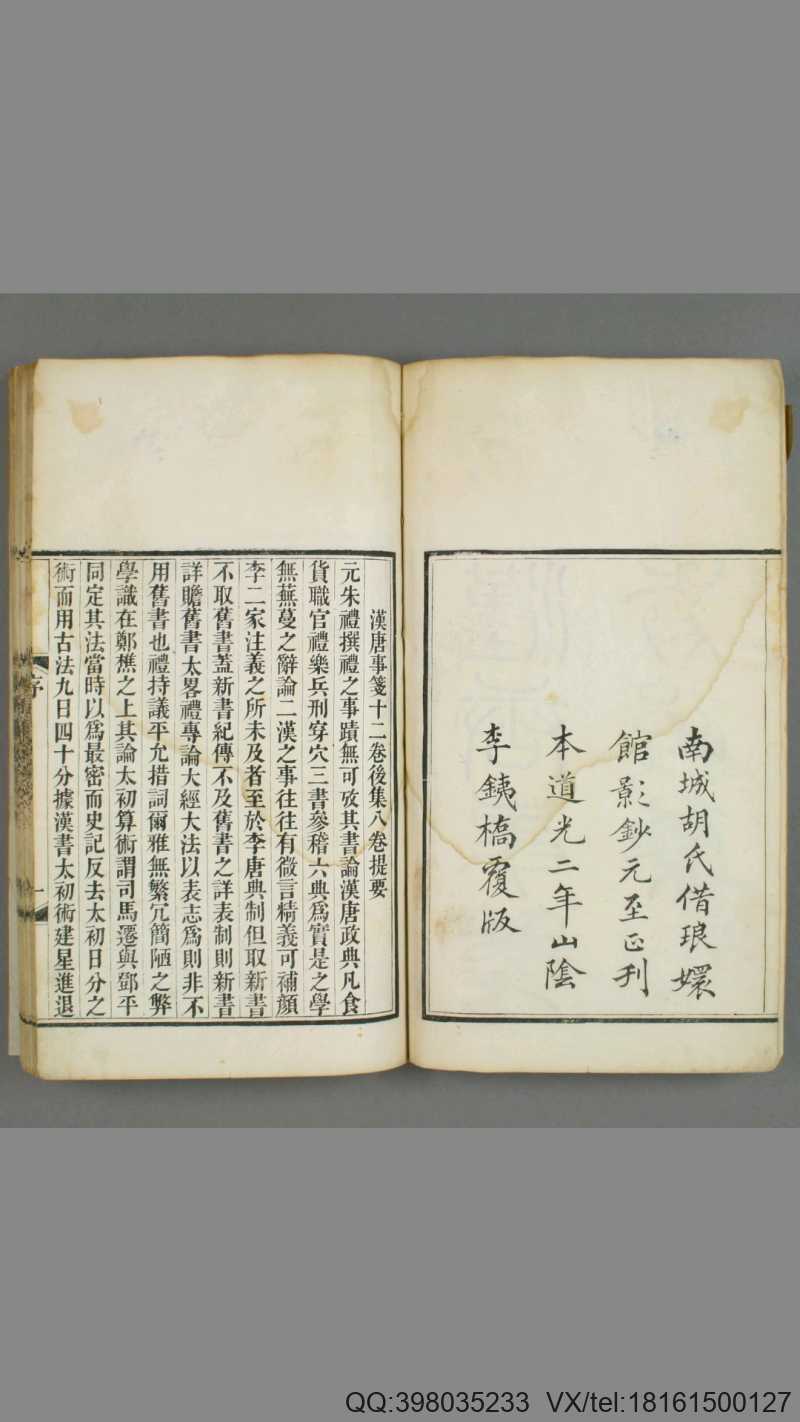 南城胡氏借琅嬛
館影鈔元至正刊
本道光二年山陰
李銕橋覆版
漢唐事箋十二卷後集八卷提要
元朱禮撰禮之事蹟無可攷其書論漢唐政典凡食
貨職官禮樂兵刑穿穴三書參稽六典爲實是之學
無蕪蔓之辭論二漢之事往往有微言精義可補顔
李二家注義之所未及者至於李唐典制但取新書
不取舊書蓋新書紀傳不及舊書之詳表制則新書
詳贍舊書太畧禮專論大經大法以表志爲則非不
用舊書也禮持議平允措詞爾雅無繁冗簡陋之弊
學識在鄭樵之上其論太初算術謂司馬遷與鄧平
同定其法當時以爲最密而史記反去太初日分之
術而用古法九日四十分據漢書太初術建星進退
序
一
QQ:398035233 VX/tel:18161500127